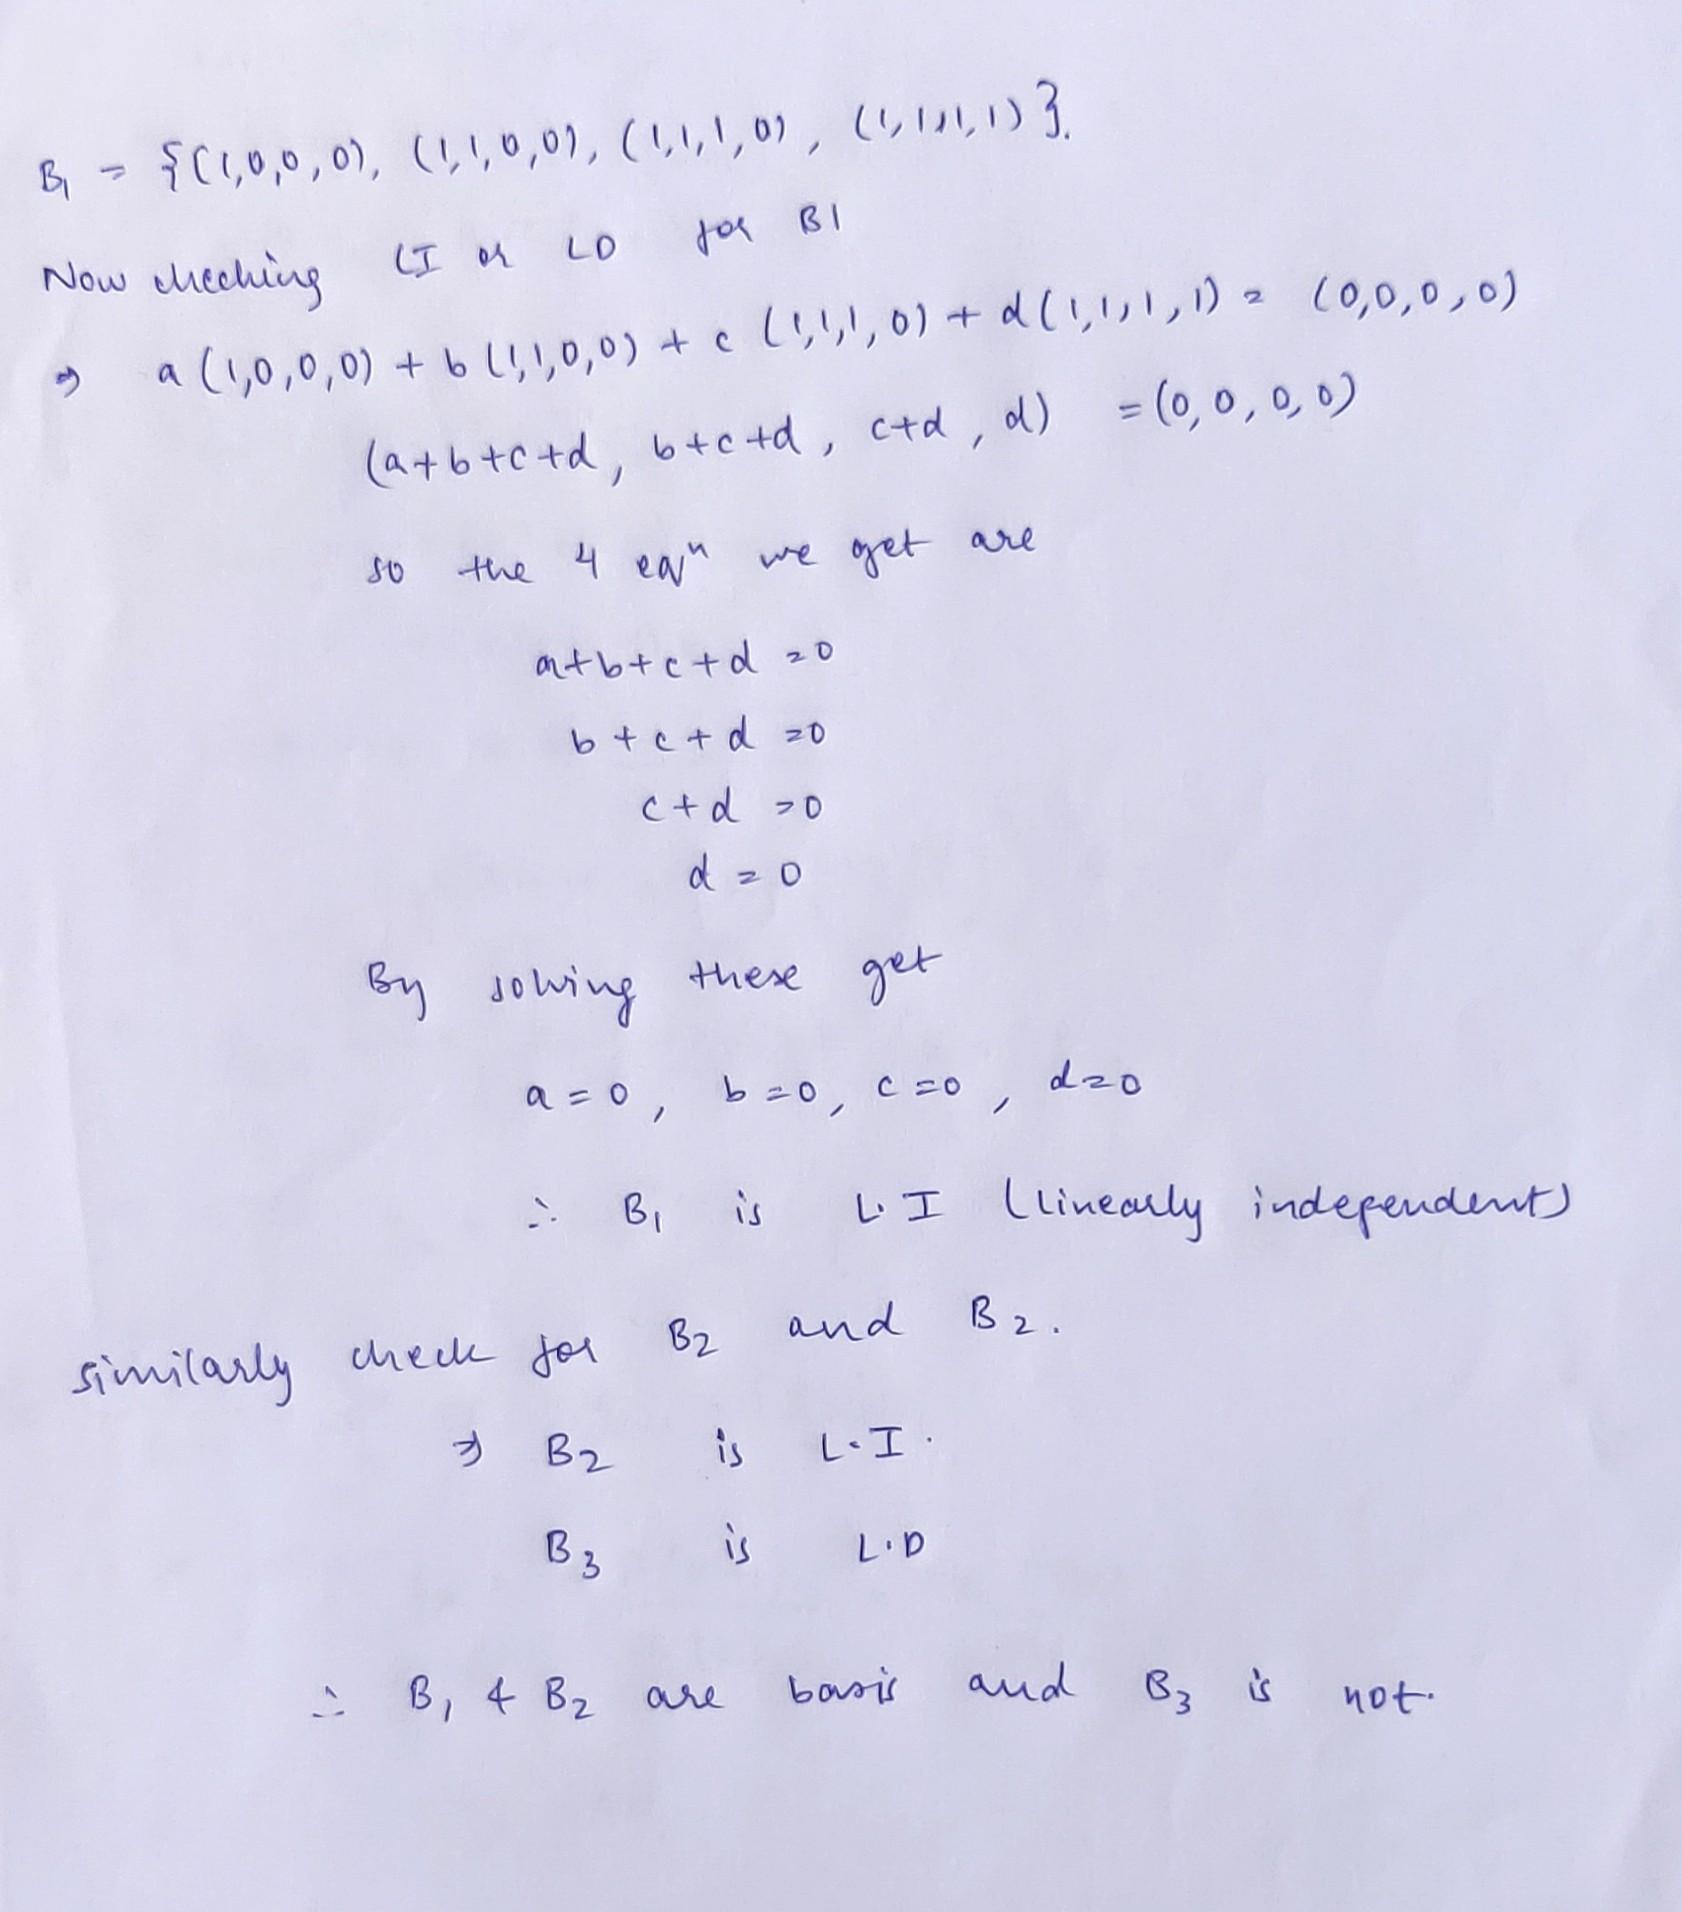 B₁ = {(1,0,0,0), (1,1,0,0), (1,1,1,0), (1,1,1,1)}.
Now checking LI or LD for B1
⇒ a(1,0,0,0) + b(1,1,0,0) + c(1,1,1,0) + d(1,1,1,1) = (0,0,0,0)
(a+b+c+d, b+c+d, c+d, d) = (0,0,0,0)
so the 4 eqⁿ we get are
a+b+c+d = 0
b+c+d = 0
c+d = 0
d = 0
By solving these get
a=0, b=0, c=0, d=0
∴ B₁ is L.I (linearly independent)
similarly check for B₂ and B₂.
⇒ B₂ is L.I.
B₃ is L.D
∴ B₁ & B₂ are basis and B₃ is not.